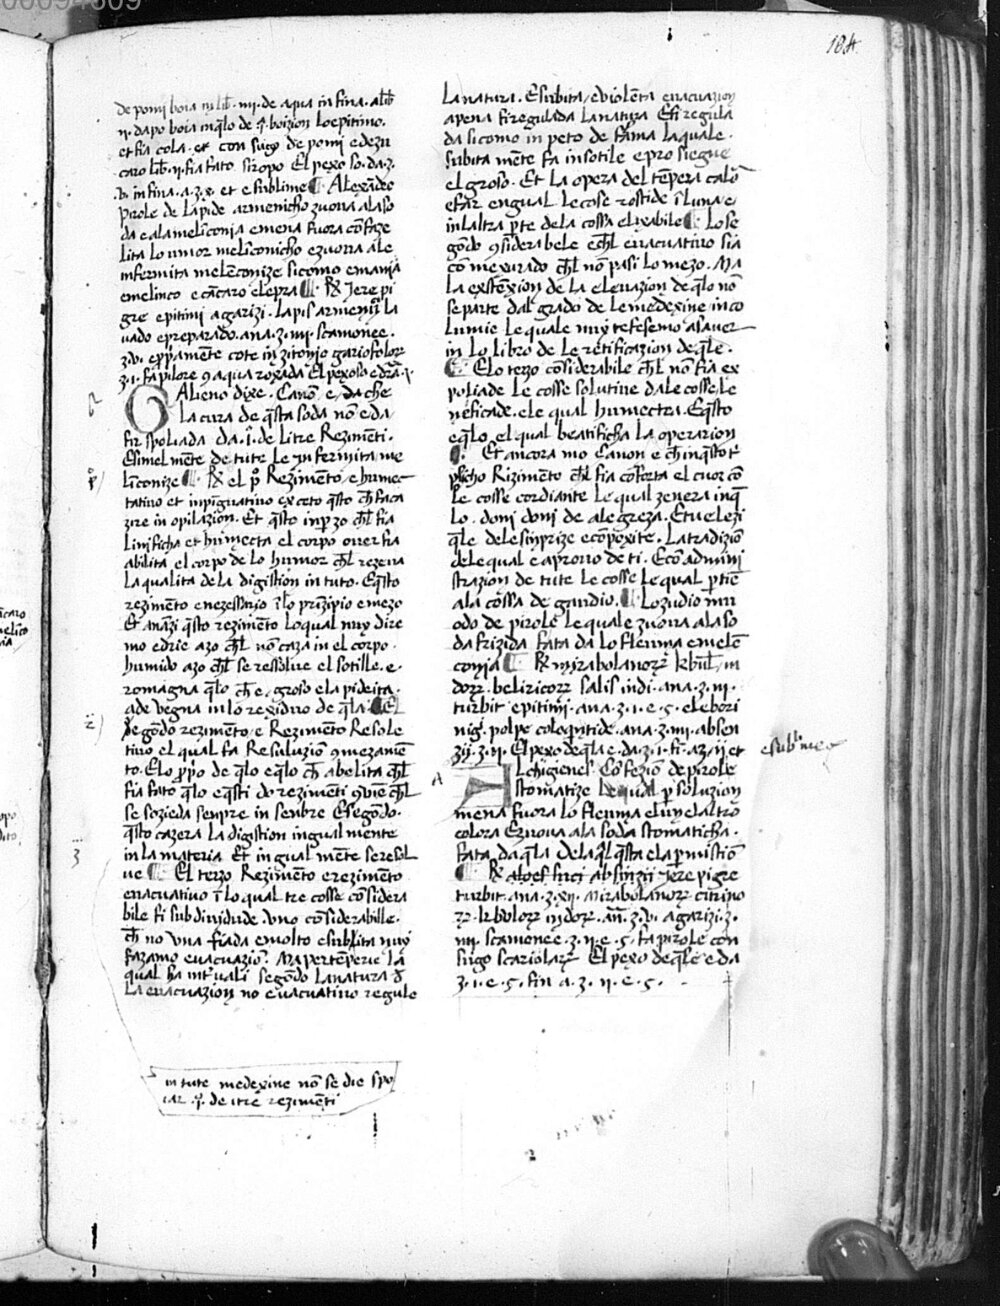 184
de pomi boia in lib. iiii. de aqua infina. a lib
ii. dapo boia in q̄lo de ʒ. boizion loepitimo.
et fia cola. et con sugo de pomi e dezu
caro lib. ii. fia fato siropo El pexo so. da. ʒ.
v. infina. a. ʒ. x. et e sublime Alexādro
pirole de lapide armenicho zuova alaso
da e ala melīconia e mena fuora cōfeze
lita lo umor melīconicho e zuova ale
infermita melēconize sicomo emania
emelinco e cācaro elepra ℞ Jere pi
gre epitimi agarizi. lapis armenii la
uado e preparado. ana. ʒ. iiii. scamonee.
ʒ. v. epp̄amente cote in zitonio gariofolor̄
ʒ. i. fa pilore ꝯ aqua roxada El pexoso e drā. i.
GAlieno dixe. Canō e, da che
la cura de q̄sta soda nō e da
fir spoliada da. i. de li tre Rezimēti.
Esimel mēte de tute le infermita me
līconize ℞ el p̄ Rezimēto e humec
tativo et inpīguativo exceto q̄sto ch̄ faca
zire in opilazion. Et q̄sto inp̄zo ch̄l fia
linificha et humecta el corpo over fia
abilita el corpo de lo humor ch̄l rezeva
la qualita de la digistion in tuto. Eq̄sto
rezimēto e nezessario ī lo prīzipio e mezo
Et anāzi q̄sto rezimēto loqual nuy dire
mo edrie azo ch̄l nō caza in el corpo.
humido azo ch̄l se ressolve el sotille. e.
romagna q̄lo ch̄ e, groso e la pideita.
ade vegna in lo residuo de q̄la. El
segōdo rezimēto, e Rezimēto Resole
tivo el qual fa Resoluziō ꝯ mezanie
to. Elo p̄p̄io de q̄lo eq̄lo ch̄ abelita ch̄l
fia fato q̄lo eq̄sti do rezimēti ꝯvien ch̄l
se sozieda senpre in senbre Esegōdo.
q̄sto cazera la digistion ingual mente
in la materia Et ingual mēte se resol
ve El terzo Rezimēto e rezimēto
evacuativo ī lo qual tre cosse cōsidera
bile si sub dividude. Uno cōsiderabille.
ch̄ no una fiada e molto e subita nuy
fazamo evacuaziō. Ma per tēperie la
qual ha īntuali segōdo la natura ꝺ
la evacuazion no evacuativo regule
in tute medexine nō se die spo
iar. ʒ. de itrē rezimēti
la natura. Esubita, e violēta evacuazion
apena fi regulada la natura Efi regula
da sicomo in peto de fāma la quale.
subita mēte fa in sotile e prosiegue
el groso. Et la opera del tēpera calō
efar en gual le cose rostide ī luna e
in laltra p̄te de la cossa elixabile Lo se
gōdo ꝯsiderabele ech̄l evacuativo sia
cō mexurado ch̄l nō pasi lo mezo. Ma
la exstēxion de la elevazion de q̄lo nō
se parte dal grado de le medexine in co
lumie le quale nuy te fesemo asaver
in lo libro de le retificazion de q̄le.
Elo terzo cōsiderabile ch̄l nō fia ex
poliade le cosse solutive dale cosse, le
neficade. ele qual humectra. Eq̄sto
eq̄lo, el qual beatificha la operazion
Et ancora mo Canon e ch̄ inq̄sto t̄
plicho Rizimēto ch̄l fia cōforta el cuor cō
le cosse cordiante le qual zenera inq̄
lo. doni doni de alegreza. Etu elezi
q̄le dele sinprize e cōpoxite. La tradiziō
dele qual e aprovo de ti. Ecō admini
strazion de tute le cosse le qual p̄tiē
ala cossa de gaudio. Lo zudio in m
odo de pirole le quale zuova alaso
da frizida fata da lo fleuma e melē
conia ℞ mirabolanor̄ kbuli, in
dor̄. belizicor̄ salis indi. ana. ʒ. iii.
turbit epitimi. ana. ʒ. i. e. ʒ. elebori
nigi. polpe coloquitide. ana. ʒ. iiii. absen
zii. ʒ. ii. El pexo de q̄la e. da. ʒ. i. fi. aʒ. ii et e sublimeo
Alchigienes Cōfeziō de pirole
stomatize le qual p̄ soluzion
mena fuora lo fleuma el un elaltro
colora Ezuova ala soda stomaticha.
fata, da q̄la dela q̄l q̄sta e la p̄mistiō
℞ aloes suci absinzii jere pigre
turbit. ana. ʒ. xii. mirabolanor̄ citrino
r̄. kbulor̄ indor̄. an̄. ʒ. v. agarizi. ʒ.
iiii. scamonee. ʒ. ii. e. ʒ. fa pirole con
sugo scariolar̄ El pexo de q̄le e da
ʒ. i. e. ʒ. fin a. ʒ. ii. e. ʒ.